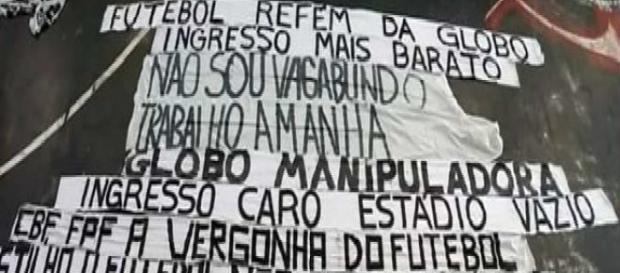 FUTEBOL REFÉM DA GLOBO
INGRESSO MAIS BARATO
NÃO SOU VAGABUNDO
TRABALHO AMANHÃ
GLOBO MANIPULADORA
INGRESSO CARO ESTÁDIO VAZIO
CBF, FPF A VERGONHA DO FUTEBOL
O FUTEBOL